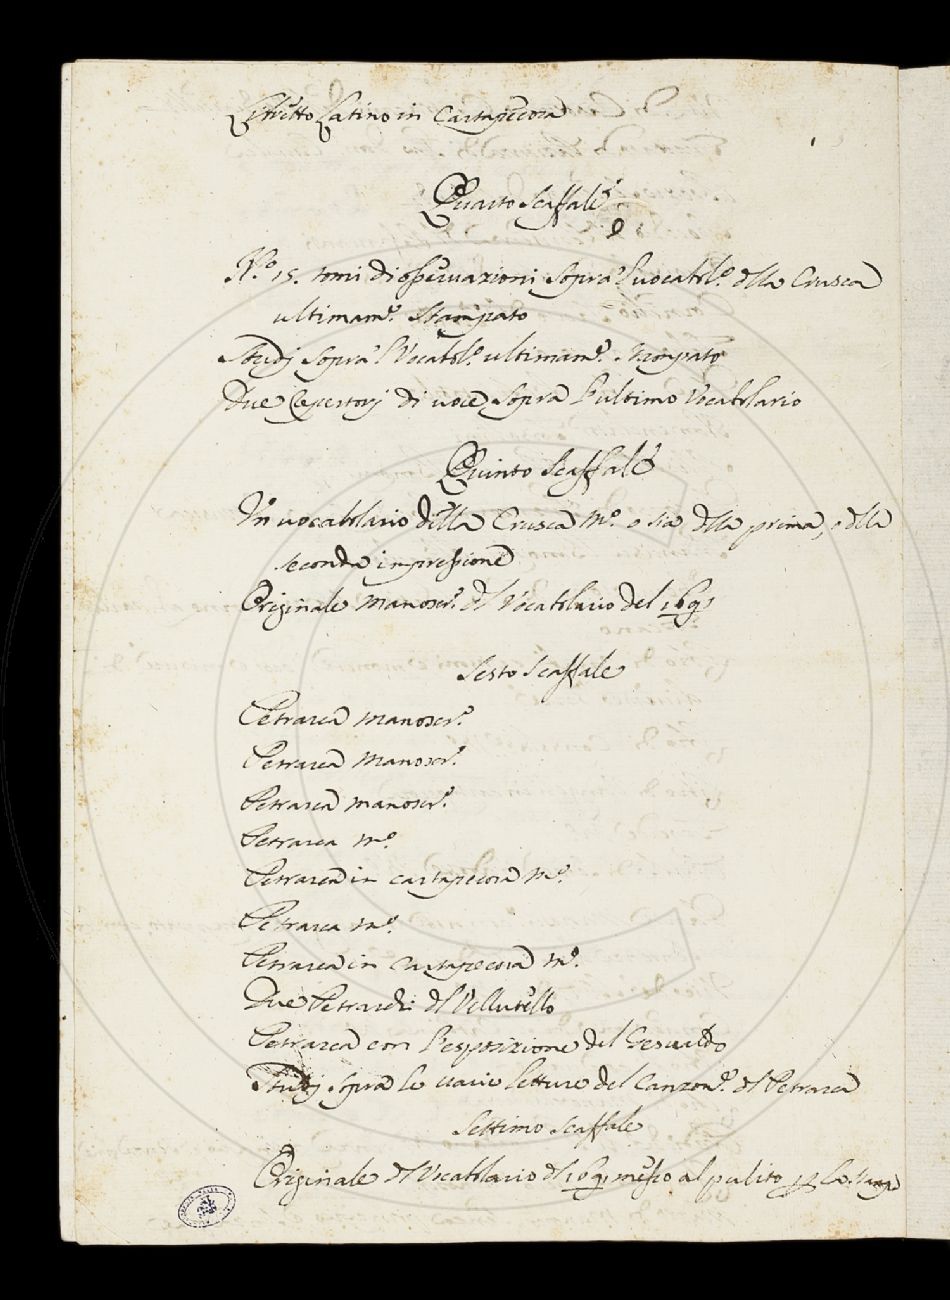 Libretto Latino in Cartapecora
Quarto Scaffale
N.º 15. tomi di osservazioni sopra l'vocabl.º della Crusca
ultimam.º Stampato
Studj sopra l'Vocabl.º ultimam.º stampato
Due Repertorj di voce sopra l'ultimo Vocabolario
Quinto Scaffale
Un vocabolario della Crusca M.º o sia della prima, o della
seconda impressione
Originale manoscr.º del Vocabolario del 1691
Sesto Scaffale
Petrarca manoscr.º
Petrarca manoscr.º
Petrarca manoscr.º
Petrarca m.º
Petrarca in cartapecora m.º
Petrarca m.º
Petrarca in cartapecora m.º
Due Petrarchi del Vellutello
Petrarca con l'esposizione del Gesualdo
Studj sopra le varie letture del Canzon.º del Petrarca
Settimo Scaffale
Originale del Vocabolario del 1691 messo al pulito p la stampa